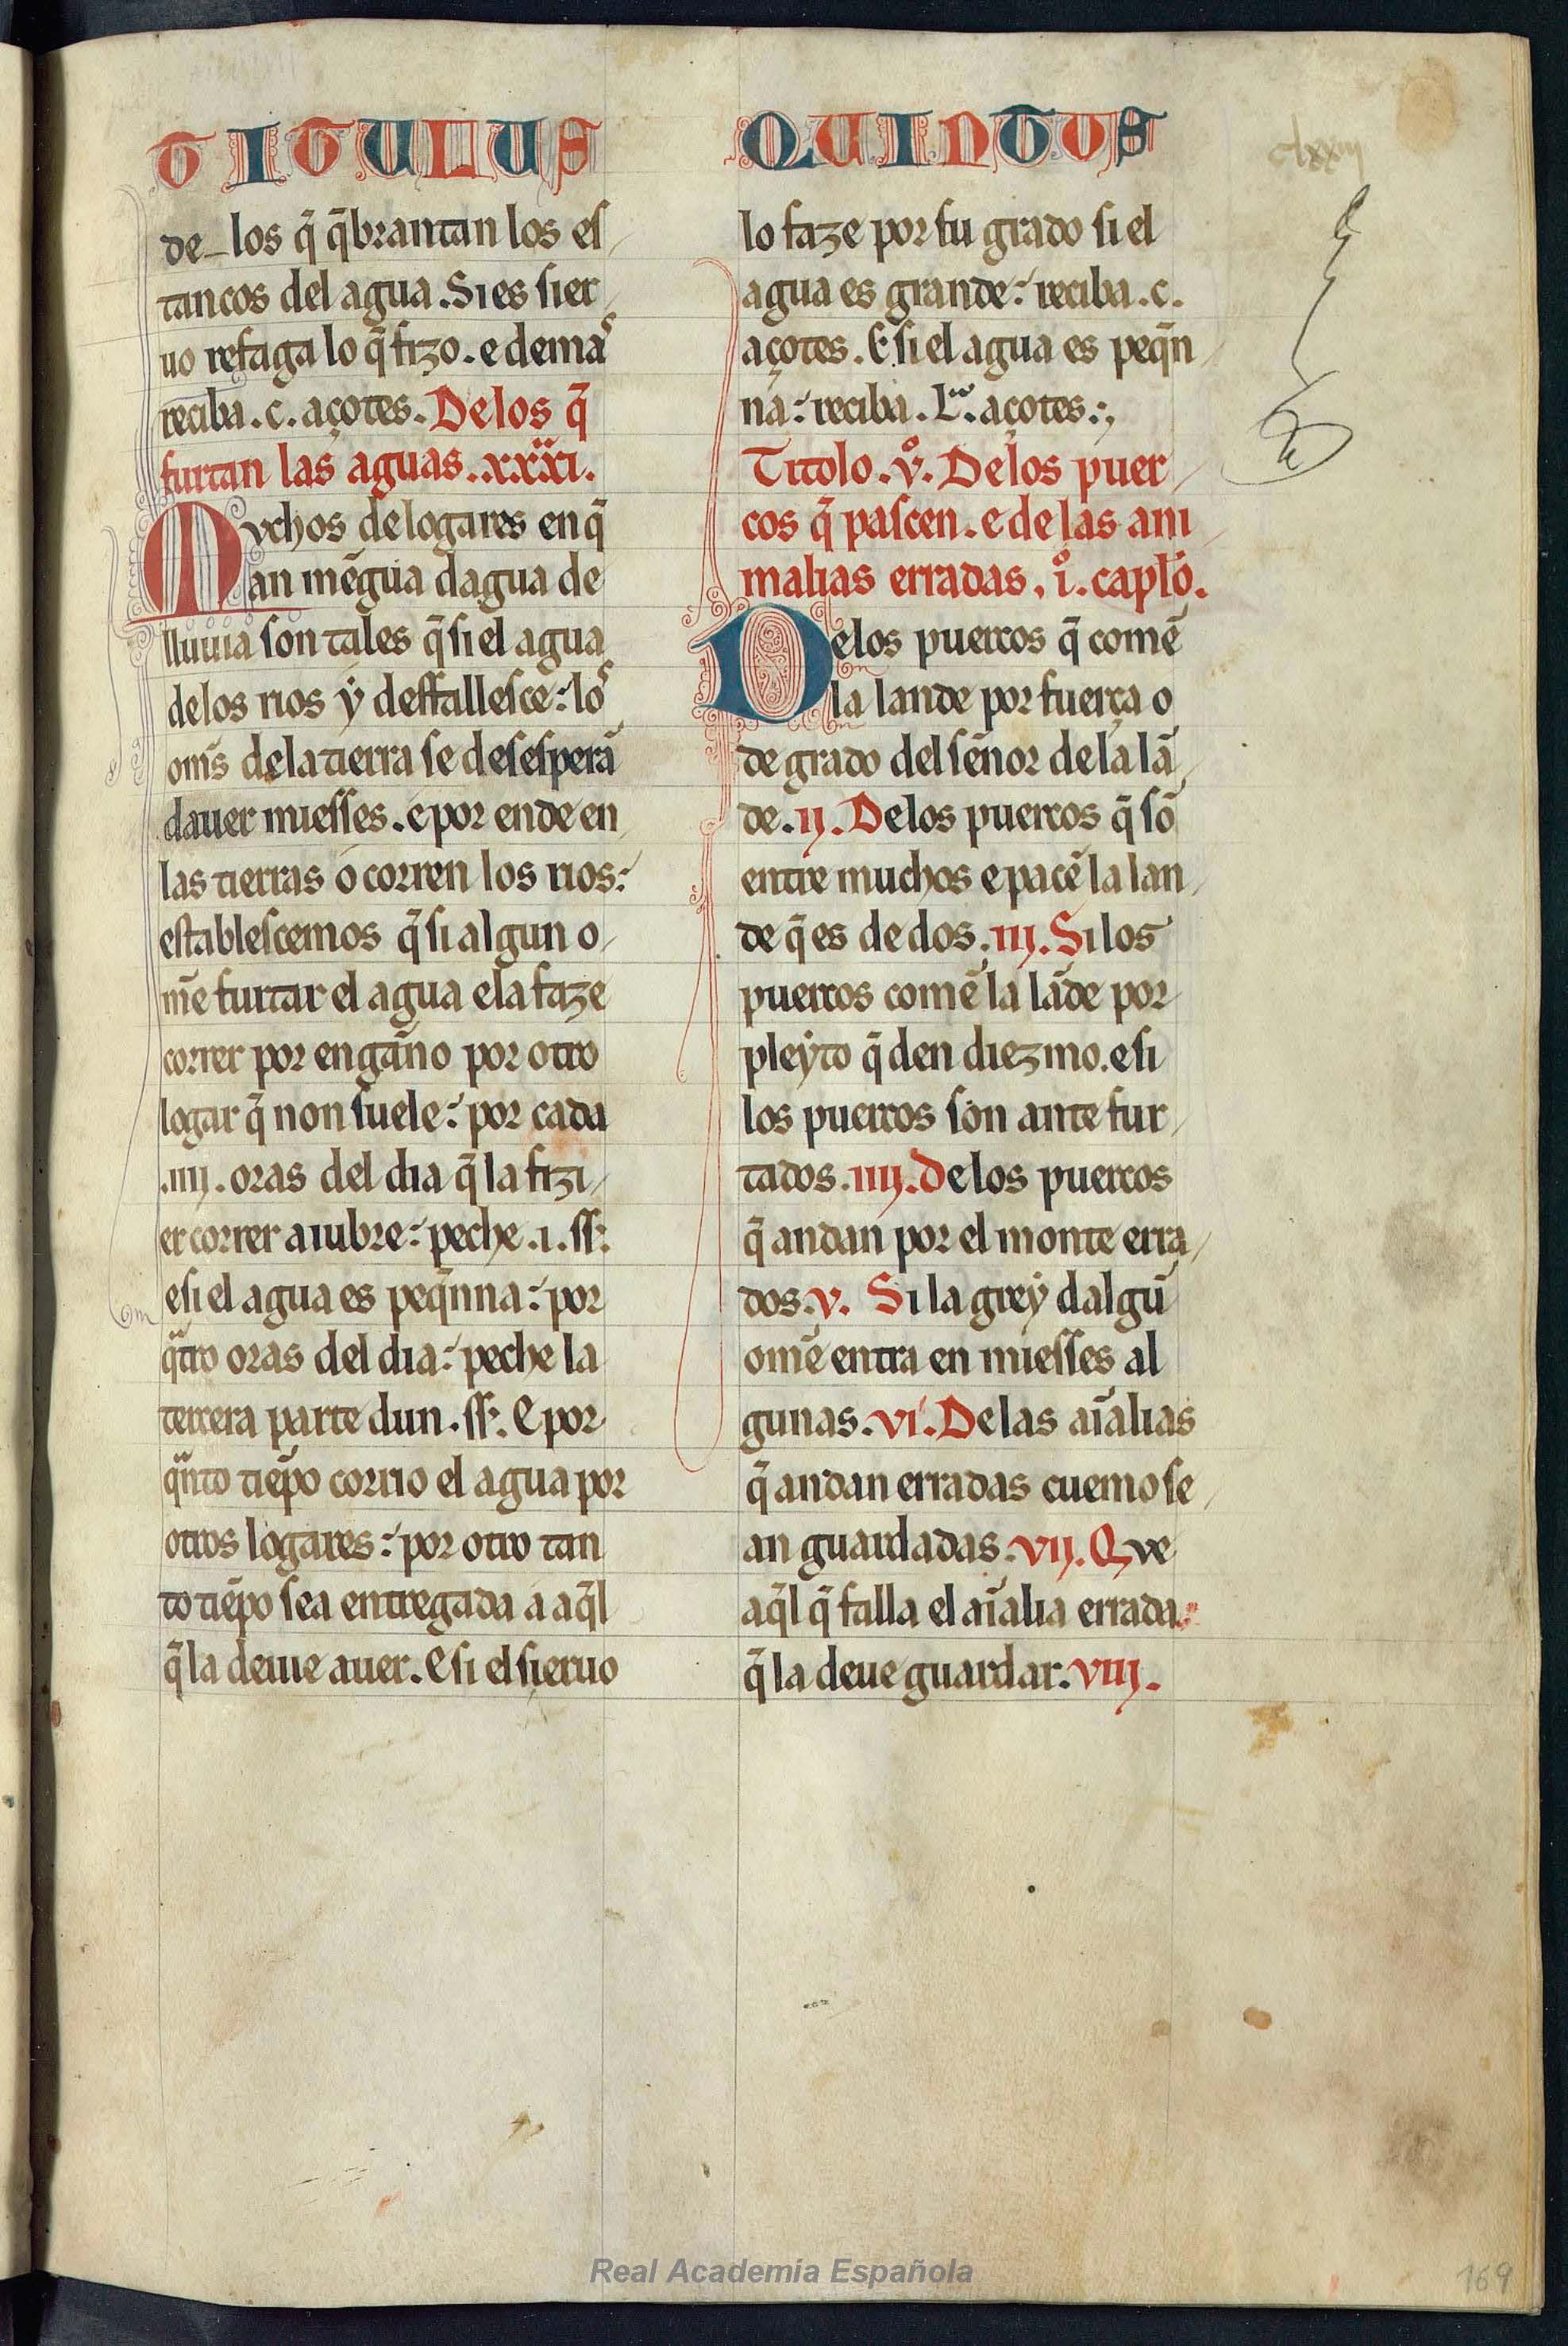 TITULUS
de los q̃ q̃brantan los eſ
tancos del agua. Si es ſier
uo refaga lo q̃ fizo. e demaˢ
reciba .c. açotes. De los q̃
furtan las aguas. xxxi.
Mvchos de logares en q̃
an mẽgua dagua de
lluuia ſon tales q̃ ſi el agua
de los rios ẏ deffalleſce: loˢ
om̃s de la tierra ſe deſeſperã
dauer mieſſes. e por ende en
las tierras ó corren los rios:
eſtableſcemos q̃ ſi algun o
m̃e furtar el agua e la faze
correr por engãno por otro
logar q̃ non ſuele: por cada
.iiij. oras del dia q̃ la fizi
er correr aiubre: peche .i. ſſ:
e ſi el agua es peq̃nna: por
q̃tro oras del dia: peche la
tercera parte dun .ſſ. E por
q̃nto tiẽpo corrio el agua por
otros logares: por otro tan
to tiẽpo ſea entregada á aq̃l
q̃ la deuie auer. E ſi el ſieruo
QUINTUS
clxxiij
lo faze por ſu grado ſi el
agua es grande: reciba .c.
açotes. E ſi el agua es peq̃n
na: reciba .L. açotes:,
Titolo .vº. De los puer
cos q̃ paſcen. e de las ani
malias erradas. iº. caplo̊.
De los puercos q̃ comẽ
la lande por fuerça o
de grado del ſeñor de la lã
de. ij. De los puercos q̃ ſõ
entre muchos e pacẽ la lan
de q̃ es de dos. iij. Si los
puercos comẽ la lãde por
pleẏto q̃ den diezmo. e ſi
los puercos ſon ante fur
tados. iiij. De los puercos
q̃ andan por el monte erra
dos. v. Si la greẏ dalgũ
omẽ entra en mieſſes al
gunas. vi. De las aĩalias
q̃ andan erradas cuemo ſe
an guardadas. vij. Qve
aq̃l q̃ falla el aĩalia errada:
q̃ la deue guardar. viij.
Real Academia Española
169